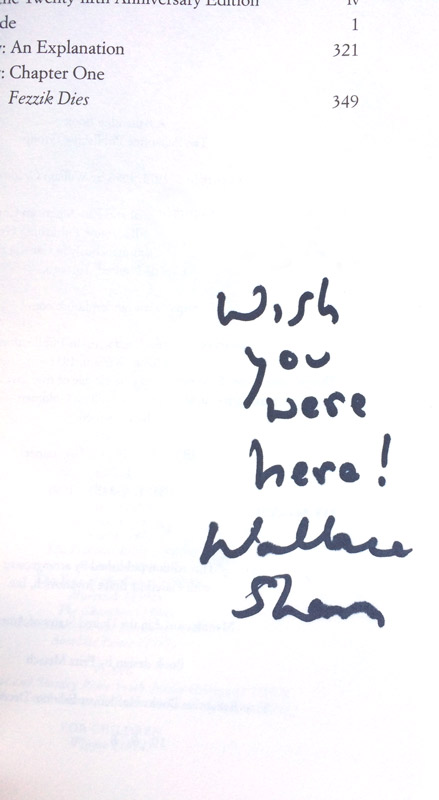 the Twenty-fifth Anniversary Edition iv
de 1
: An Explanation 321
: Chapter One
Fezzik Dies 349
Wish
you
were
here!
Wallace
Shawn